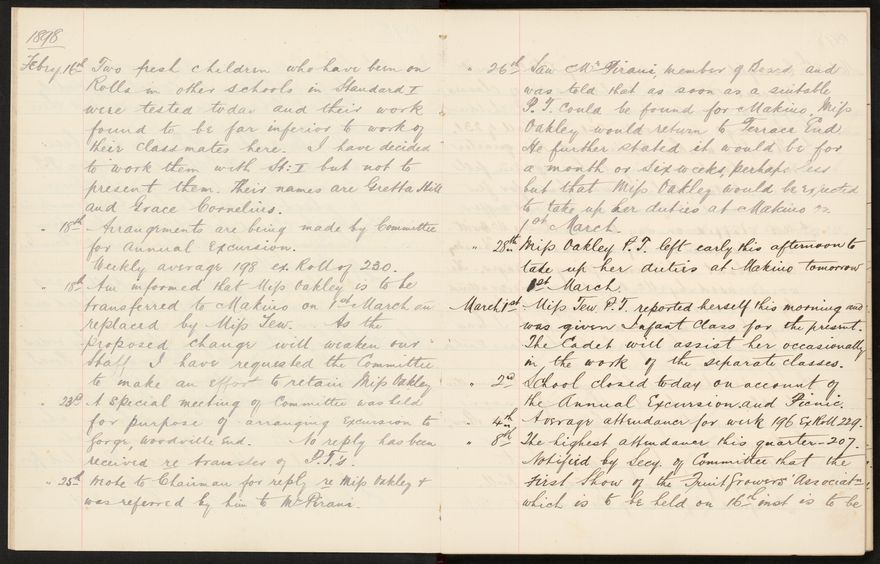 1898
Febry 16th Two fresh children who have been on
Rolls in other schools in Standard I
were tested today and their work
found to be far inferior to work of
their classmates here. I have decided
to work them with St: I but not to
present them. Their names are Gretta Hill
and Grace Cornelius.
" 18th Arrangments are being made by Committee
for Annual Excursion.
Weekly average 198 ex Roll of 230.
" 18th Am informed that Miss Oakley is to be
transferred to Makino on 1st March an
replaced by Miss Tew. As the
proposed change will weaken our
Staff I have requested the Committee
to make an effort to retain Miss Oakley
" 23d A Special meeting of Committee was held
for purpose of arranging Excursion to
Gorge, Woodville End. No reply has been
received re transfer of P.T.'s.
" 25th Wrote to Chairman for reply re Miss Oakley +
was referred by him to Mr Pirani.
" 26th Saw Mr Pirani, member of Board, and
was told that as soon as a suitable
P.T. could be found for Makino, Miss
Oakley would return to Terrace End
He further stated it would be for
a month or six weeks, perhaps less
but that Miss Oakley would be expected
to take up her duties at Makino on
1st March.
" 28th Miss Oakley P.T. left early this afternoon to
take up her duties at Makino tomorrow
1st March.
March 1st Miss Tew P.T. reported herself this morning and
was given Infant Class for the present.
The Cadet will assist her occasionally
in the work of the separate classes.
" 2d School closed today on account of
the Annual Excursion and Picnic.
" 4th Average attendance for week 196 Ex Roll 229.
" 8th The highest attendance this quarter - 207.
Notified by Secy. of Committee that the
First Show of the Fruit Growers' Associatn
which is to be held on 16th inst is to be